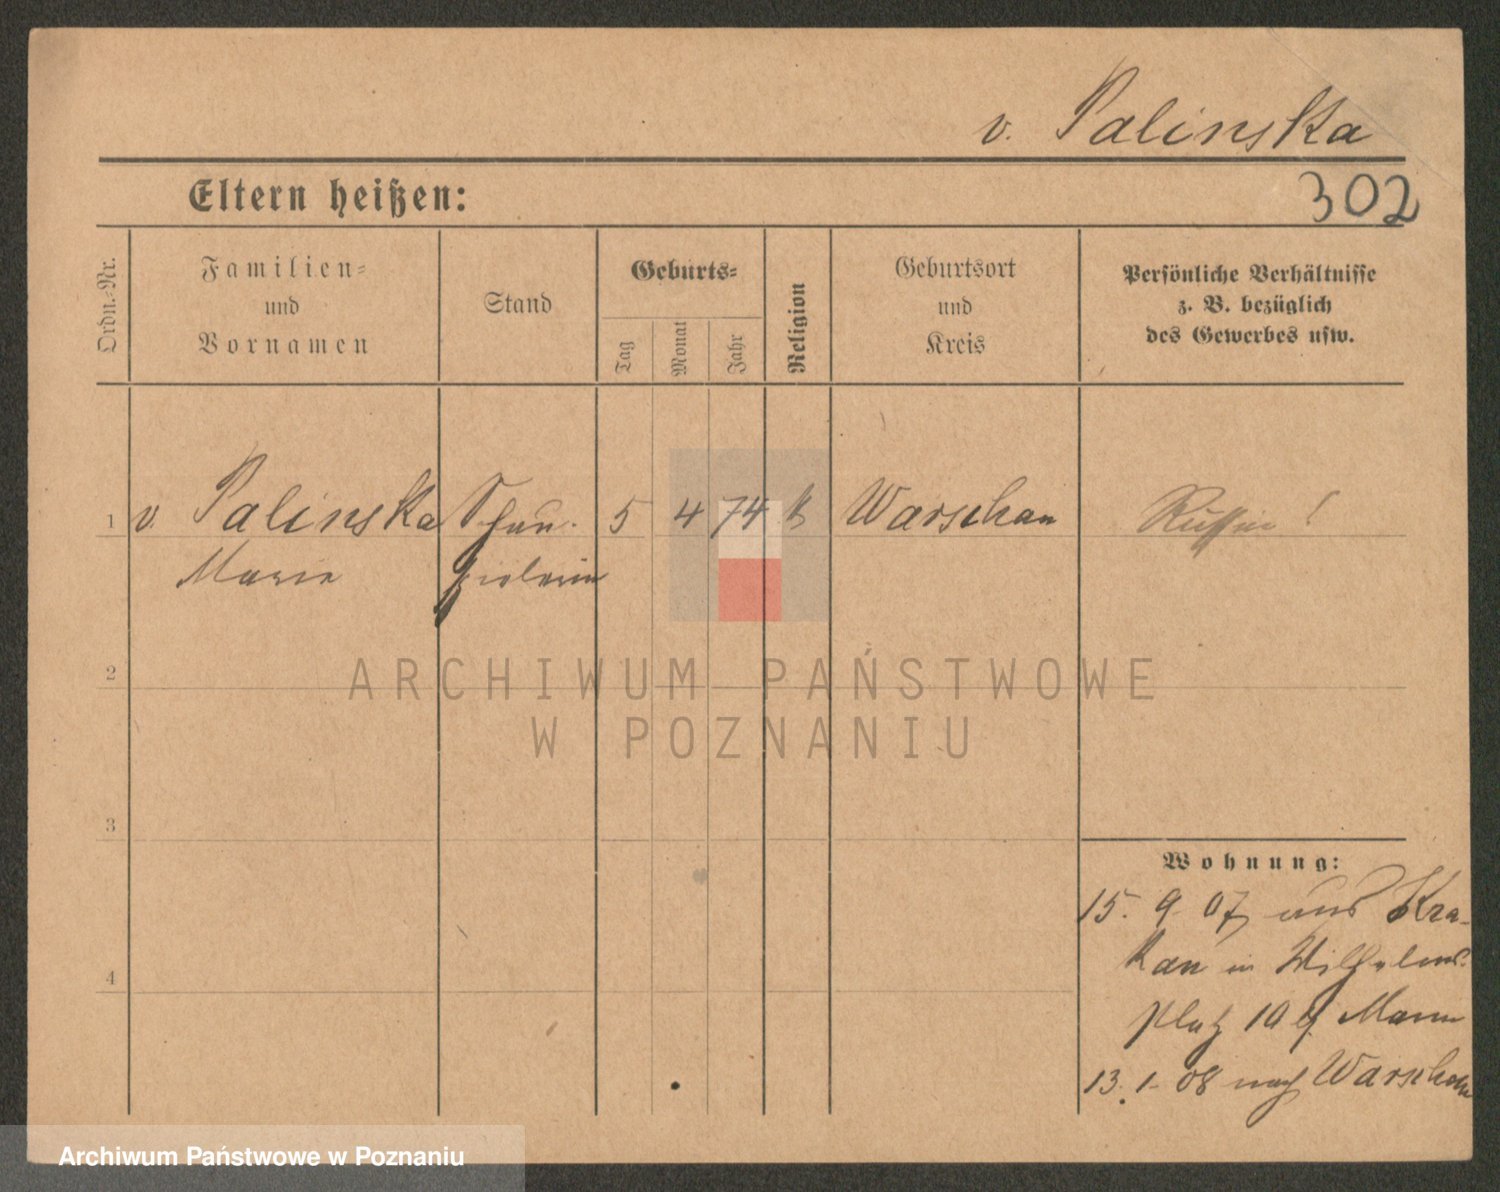 v. Palinska
Eltern heißen:
302
Ordn.-Nr.
Familien-
und
Vornamen
Stand
Geburts-
Tag
Monat
Jahr
Religion
Geburtsort
und
Kreis
Persönliche Verhältnisse
z. B. bezüglich
des Gewerbes usw.
1 v. Palinska Schau- 5 4 74 k Warschau Russin!
Marie spielerin
2
3
4
Wohnung:
15. 9. 07 aus Kra-
kau in Wilhelms
platz 10 Mann
13. 1. 08 nach Warschau
ARCHIWUM PAŃSTWOWE
W POZNANIU
Archiwum Państwowe w Poznaniu